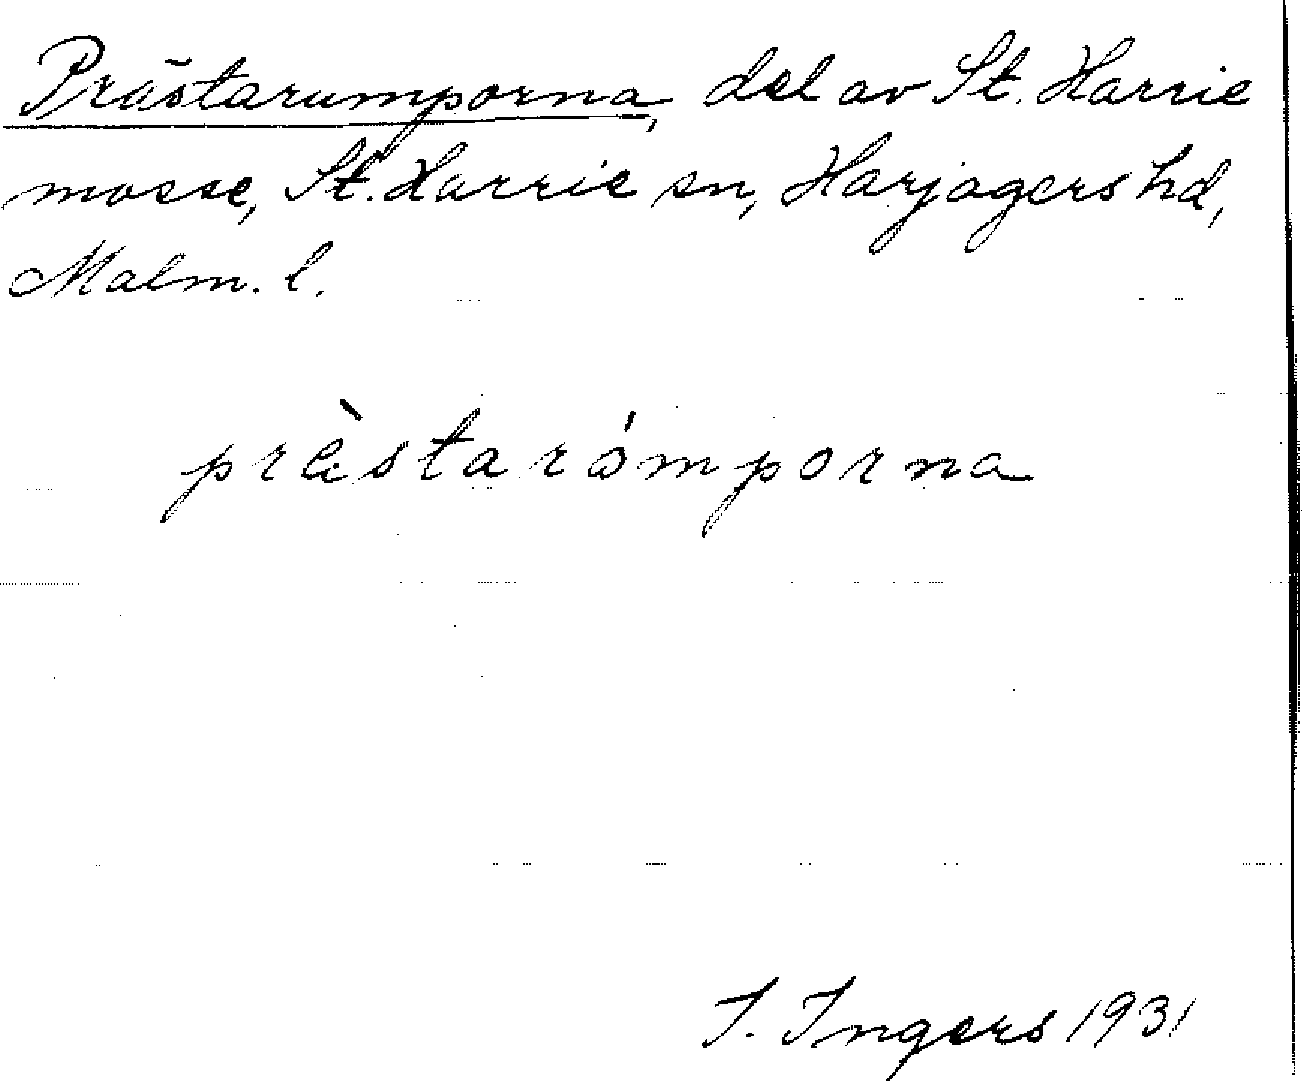 Prästarumporna, del av St. Harrie
mosse, St. Harrie sn, Harjagers hd,
Malm. l.
prästarómporna
I. Ingers 1931